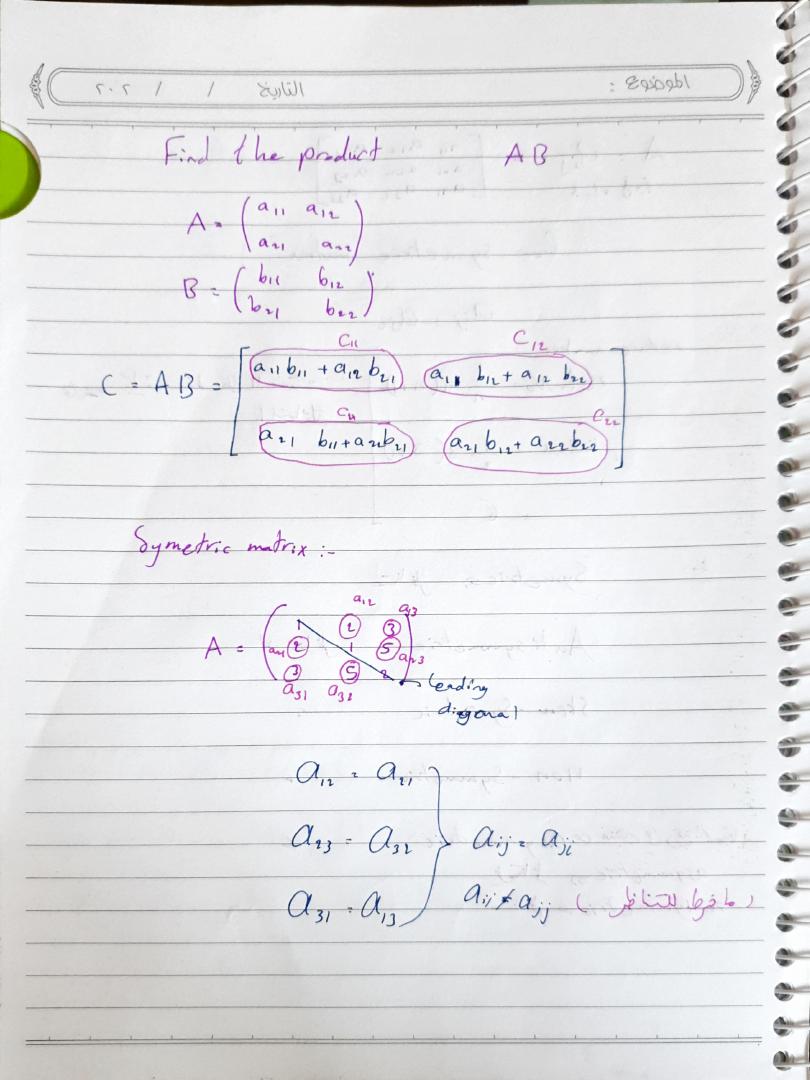 الموضوع : التاريخ / / ٢٠٢
Find the product AB
A = (a11 a12
a21 a22)
B = (b11 b12
b21 b22)
C11 C12
C = AB = [a11 b11 + a12 b21 a11 b12 + a12 b22
C21 C22
a21 b11 + a22 b21 a21 b12 + a22 b22]
Symetric matrix :-
a12 a13
A = (1 2 3
a21 2 1 5 a23
3 5 2)
a31 a32 leading
diagonal
a12 = a21
a23 = a32 } aij = aji
a31 = a13 aii ≠ ajj ( للتناظر )